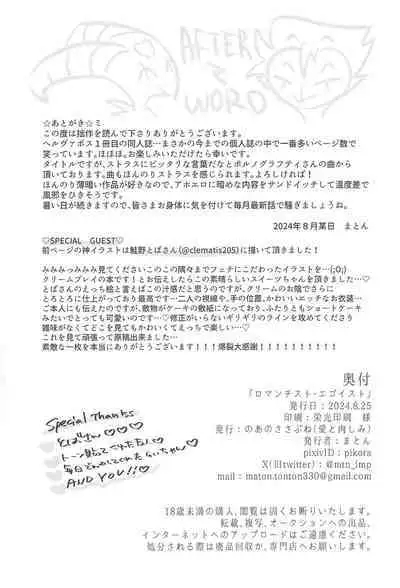 AFTER WORD
☆あとがき☆ミ
この度は拙作を読んで下さりありがとうございます。
ヘルヴァボス1冊目の同人誌…まさかの今までの個人誌の中で一番多いページ数で
笑っています。ほほほ。お楽しみいただけたら幸いです。
タイトルですが、ストラスにピッタリな言葉だなとポルノグラフティさんの曲から
頂いております。曲もほんのりストラスを感じられます。よろしければ！
ほんのり薄暗い作品が好きなので、アホエロに暗めな内容をサンドイッチして温度差で
風邪をひきそうです。
暑い日が続きますので、皆さまお身体に気を付けて毎月最新話で騒ぎましょうね。
2024年8月某日　まとん
♡SPECIAL GUEST♡
前ページの神イラストは鮭野とばさん(@clematis205)に描いて頂きました！
みみみっみみみ見てくださいこのこの隅々までフェチにこだわったイラストを…(;O;)
クリームプレイの本です！とお伝えしたら素晴らしいスイーツちゃんを頂きました…♡
とばさんのえっち絵と言えばこの汁感だと思うのですが、クリームのお陰でさらに
とろとろに仕上がっており最高です…二人の視線や、手の位置、かわいいエッチなお衣装…
ご本人にも伝えたのですが、敷物がケーキの敷紙になっており、ふたりともショートケーキ
みたいでとっても可愛いのです…♡修正がいらないギリギリのラインを攻めてくださり
雑味がなくてどこを見てもかわいくてえっちで楽しい…♡
これを見て頑張って原稿出来ました…
素敵な一枚を本当にありがとうございます！！！！爆裂大感謝！！！！！！！！！！！
Special Thanks
とばさん♡♡♡
AND YOU!!♡
奥付
『ロマンチスト・エゴイスト』
発行日：2024.8.25
印刷：栄光印刷　様
発行：のあのささぶね(愛と肉しみ)
発行者：まとん
pixivID：pikora
X(旧twitter)：@mtn_imp
mail：maton.tonton330@gmail.com
18歳未満の購入、閲覧は固くお断りいたします。
転載、複写、オークションへの出品、
インターネットへのアップロードはご遠慮ください。
処分される際は廃品回収か、専門店へお願いします。